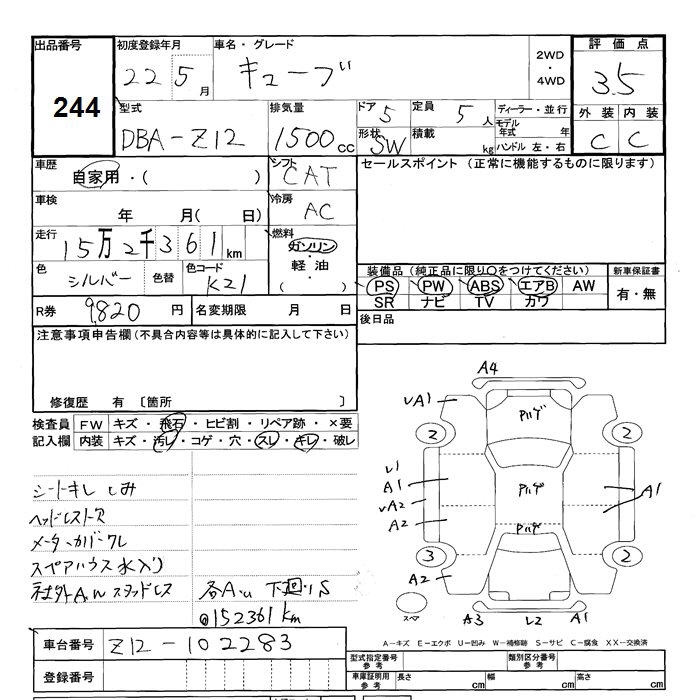 出品番号 初度登録年月 車名・グレード 2WD・4WD 評価点
244 22 5月 キューブ 3.5
型式 排気量 ドア 5 定員 5人 ディーラー・並行 外装 内装
DBA-Z12 1500cc 形状 SW 積載 kg モデル年式 年 ハンドル 左・右 C C
車歴 自家用・( ) シフト CAT セールスポイント (正常に機能するものに限ります)
車検 年 月( 日) 冷房 AC
走行 15万2千361km 燃料 ガソリン・軽油・( )
色 シルバー 色替 色コード K21
装備品 (純正品に限り○をつけてください) 新車保証書
PS PW ABS エアB AW 有・無
SR ナビ TV カワ
R券 9,820円 名変期限 月 日 後日品
注意事項申告欄 (不具合内容等は具体的に記入して下さい)
修復歴 有 〔箇所 〕
検査員記入欄 FW キズ・飛石・ヒビ割・リペア跡・×要
内装 キズ・汚レ・コゲ・穴・スレ・キレ・破レ
シートキレ しみ
ヘッドレスト穴
メーターカバークレ
スペアハウス水入り
社外Aw スタッドレス 各Aい 下回りS
@152361km
A4
νA1 アルゲ
2 2
ν1
A1 アルゲ A1
νA2
A2 アルゲ
3 2
A2
スペア A3 ν2 A1
A-キズ E-エクボ U-凹み W-補修跡 S-サビ C-腐食 XX-交換済
車台番号 Z12-102283
登録番号
型式指定番号 参考 類別区分番号 参考
車庫証明用 参考 長さ cm 幅 cm 高さ cm